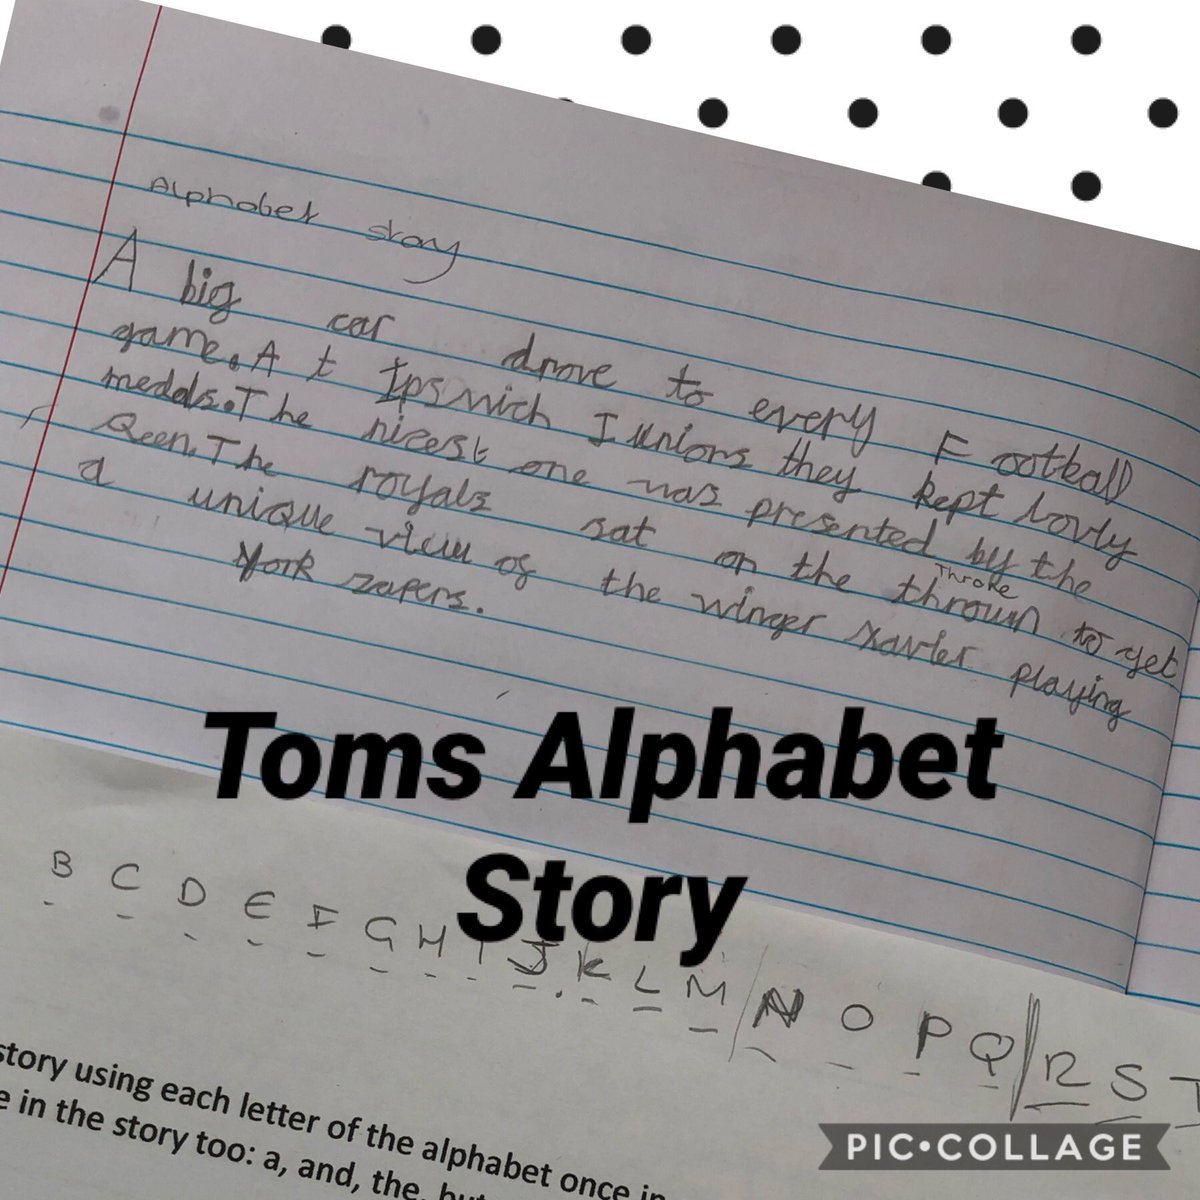 Alphabet story
A big car drove to every Football
game. At Ipswich Juniors they kept lovly
medals. The nicest one was presented by the
Qeen. The royals sat on the thrown to get
Throne
a unique view of the winger xavier playing
York zafers.
Toms Alphabet
Story
B C D E F G H I J K L M N O P Q R S T
story using each letter of the alphabet once in
e in the story too: a, and, the, but
PIC•COLLAGE